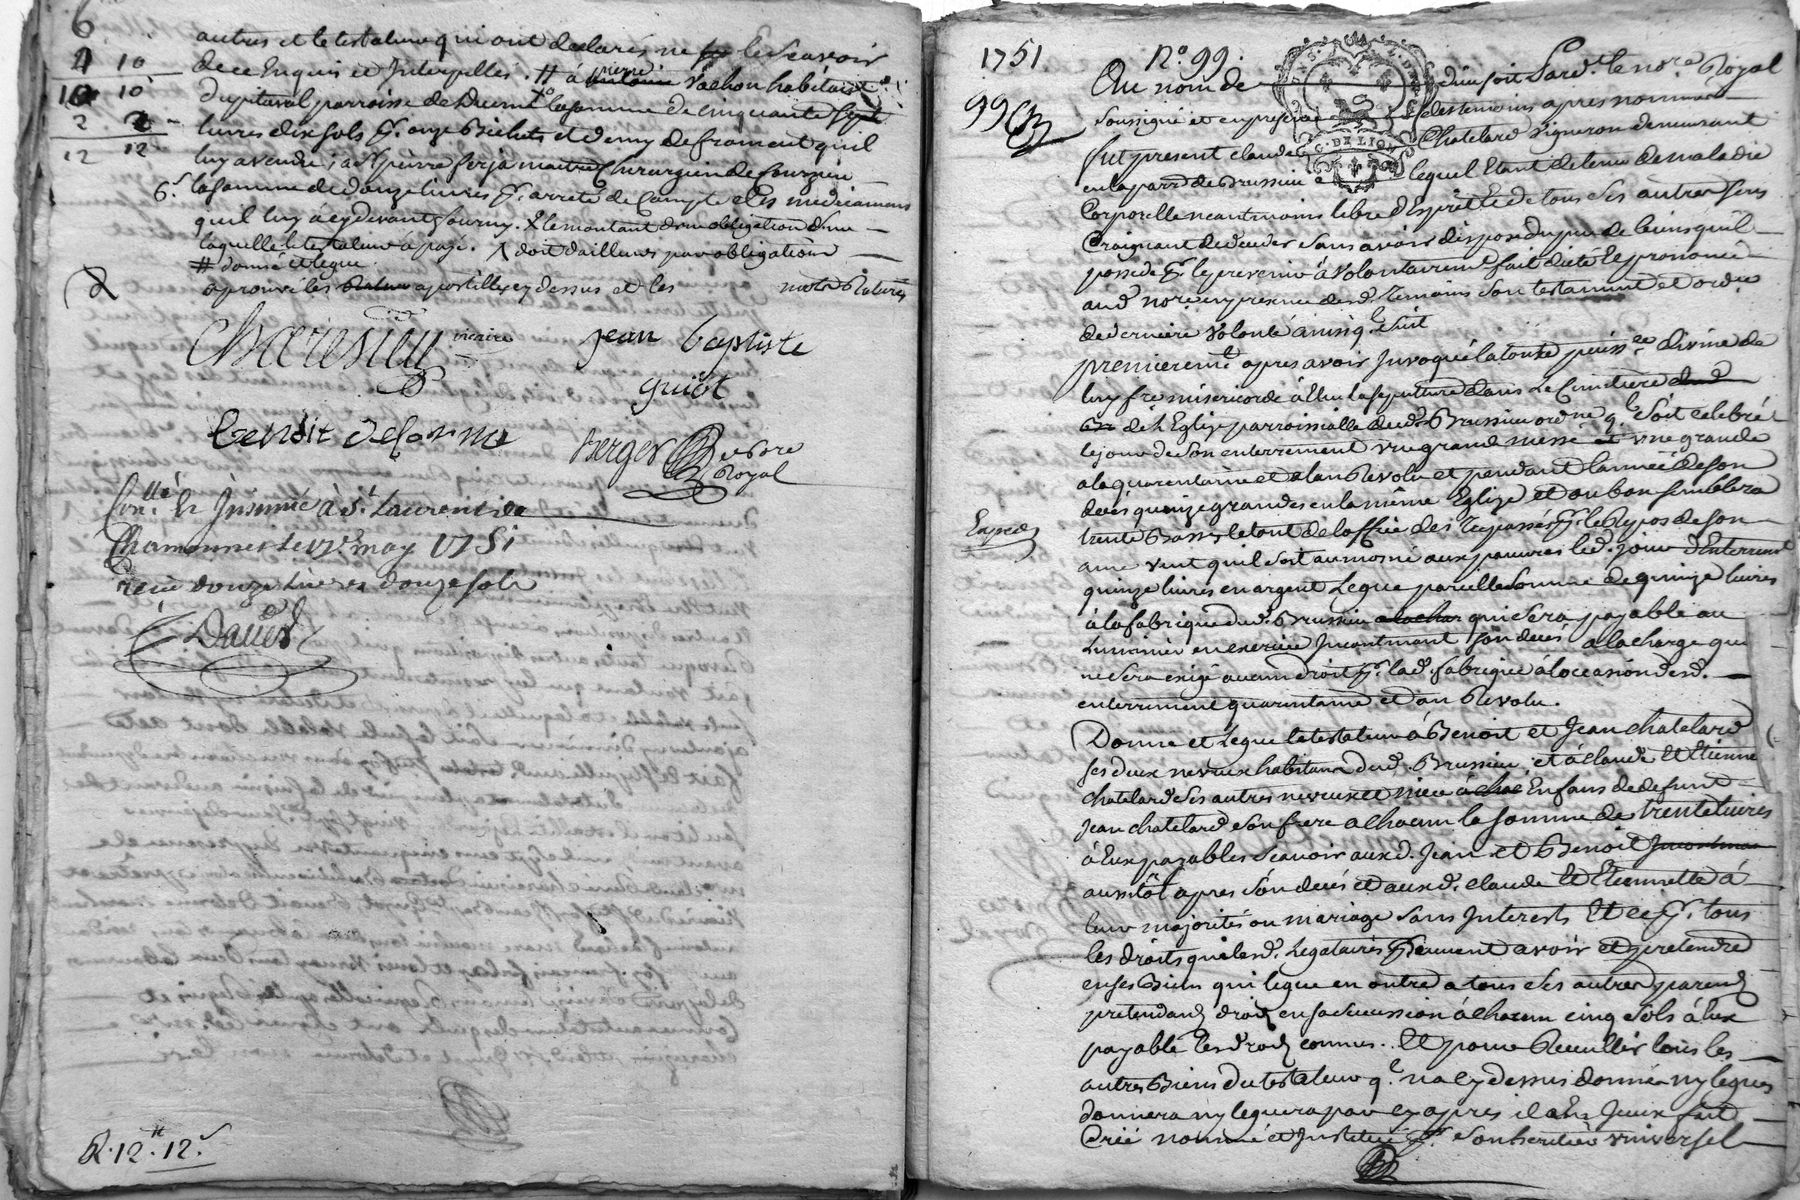 6
4 10
10 10
2 2
12 12
autres et le testateur qui ont declarés ne le scavoir
de ce Enquis et Interpellés. # à pierre Vachon habitant
du pitaval parroisse de la somme de cinquante sept
livres dix sols pr. onze Bichets et demy de froment qu'il
luy a vendu, a sr. pierre ferja maitre Chirurgien de
la somme de douze livres pr. arreté de Compte des medicamens
6.
quil luy à cy devant fourny. X le montant d'une obligation
laquelle le testateur à payé. doit d'ailleurs par obligation
# donné et legué
aprouvé les apostilles cy dessus et les mots Raturés
vicaire jean baptiste
guiot
benoit delorme
berger nore
Royal
Con.llé et Insinué à St. Laurent de
Chamousset le 17e. may 1751
reçu douze livres douze sols
David
R. 12.# 12.s
1751 No. 99.
99
Au nom de dieu soit Pard. le nore. Royal
soussigné et en presence des temoins apres nommés
fut present claude Chatelard vigneron demeurant
en la parr. de Brussieu lequel Etant detenu de maladie
Corporelle neantmoins libre d'Esprit et de tous ses autres sens
Craignant de deceder sans avoir disposé du peu de biens qu'il
possede pr. le prevenir à volontairemt. fait dicté et prononcé
aud. nore. en presence desd. temoins son testament et ordce
de derniere volonté ainsi q.l suit
premieremt. apres avoir Invoqué la toute puissce. divine de
luy fre misericorde à Elu sa sepulture dans Le Cimetiere
de l'Eglise parroissialle dud. Brussieu ordne. q.l soit celebré
le jour de son enterrement une grand messe et une grande
a la quarentaine et d'an Revolu et pendant l'année de son
decès quinze grandes en la même Eglize et au bon semblera
trente Basses le tout de l'office des Trepassés pr. le Repos de son
Exped
ame veut quil soit aumosné aux pauvres led. jour d'Enterremt.
quinze livres en argent Legue pareille somme de quinze livres
à la fabrique dud. Brussieu qui sera payable au
Luminier en exercice Incontinant son decés a la charge que
ne sera exigé aucun droit pr. lad. fabrique à l'occasion desd.
enterrement quarantaine et d'an Revolu.
Donne et Legue le testateur à Benoit et Jean chatelard
ses deux neveux habitans dud. Brussieu, et à claude et Etienne
chatelard ses autres neveux et niece à chac Enfans de defunt
Jean chatelard son frere a chacun la somme de trente livres
à Eux payables scavoir auxd. Jean et Benoit Incontinan
aussitôt apres son decés et auxd. claude et Etiennette à
leur majorité ou mariage sans Interests Et ce pr. tous
les droits que lesd. Legataires peuvent avoir et pretendre
en ses Biens qui legue en outre a tous ses autres parens
pretendans droit en sa succession à chacun cinq sols à Eux
payable les droits connus. Et pour Recuillir tous les
autres Biens du testateur q.l n'a cy dessus donnés ny legués
donnera ny leguera par cy apres il a En Jceux fait
Créé nommé et Institué pr. son heritier universel